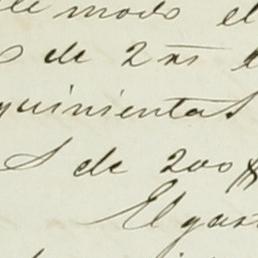 de modo el
de 2
quinientas
de 200
El gas